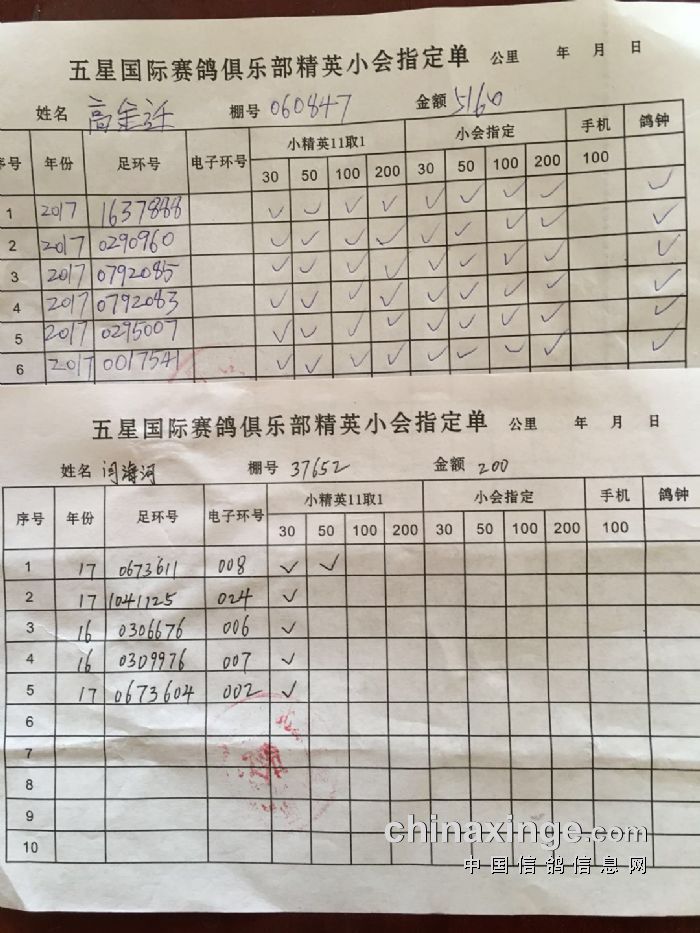 五星国际赛鸽俱乐部精英小会指定单 公里 年 月 日
姓名 高金 棚号 060847 金额 5160
序号 年份 足环号 电子环号 小精英11取1 小会指定 手机 鸽钟
30 50 100 200 30 50 100 200 100
1 2017 1637888 ✓ ✓ ✓ ✓ ✓ ✓ ✓ ✓ ✓
2 2017 0290960 ✓ ✓ ✓ ✓ ✓ ✓ ✓ ✓ ✓
3 2017 0792085 ✓ ✓ ✓ ✓ ✓ ✓ ✓ ✓ ✓
4 2017 0792083 ✓ ✓ ✓ ✓ ✓ ✓ ✓ ✓ ✓
5 2017 0295007 ✓ ✓ ✓ ✓ ✓ ✓ ✓ ✓ ✓
6 2017 0017541 ✓ ✓ ✓ ✓ ✓ ✓ ✓ ✓ ✓
五星国际赛鸽俱乐部精英小会指定单 公里 年 月 日
姓名 闫海河 棚号 37652 金额 200
序号 年份 足环号 电子环号 小精英11取1 小会指定 手机 鸽钟
30 50 100 200 30 50 100 200 100
1 17 0673611 008 ✓ ✓
2 17 1041125 024 ✓
3 16 0306676 006 ✓
4 16 0309976 007 ✓
5 17 0673604 002 ✓
6
7
8
9
10
chinaxinge.com
中国信鸽信息网